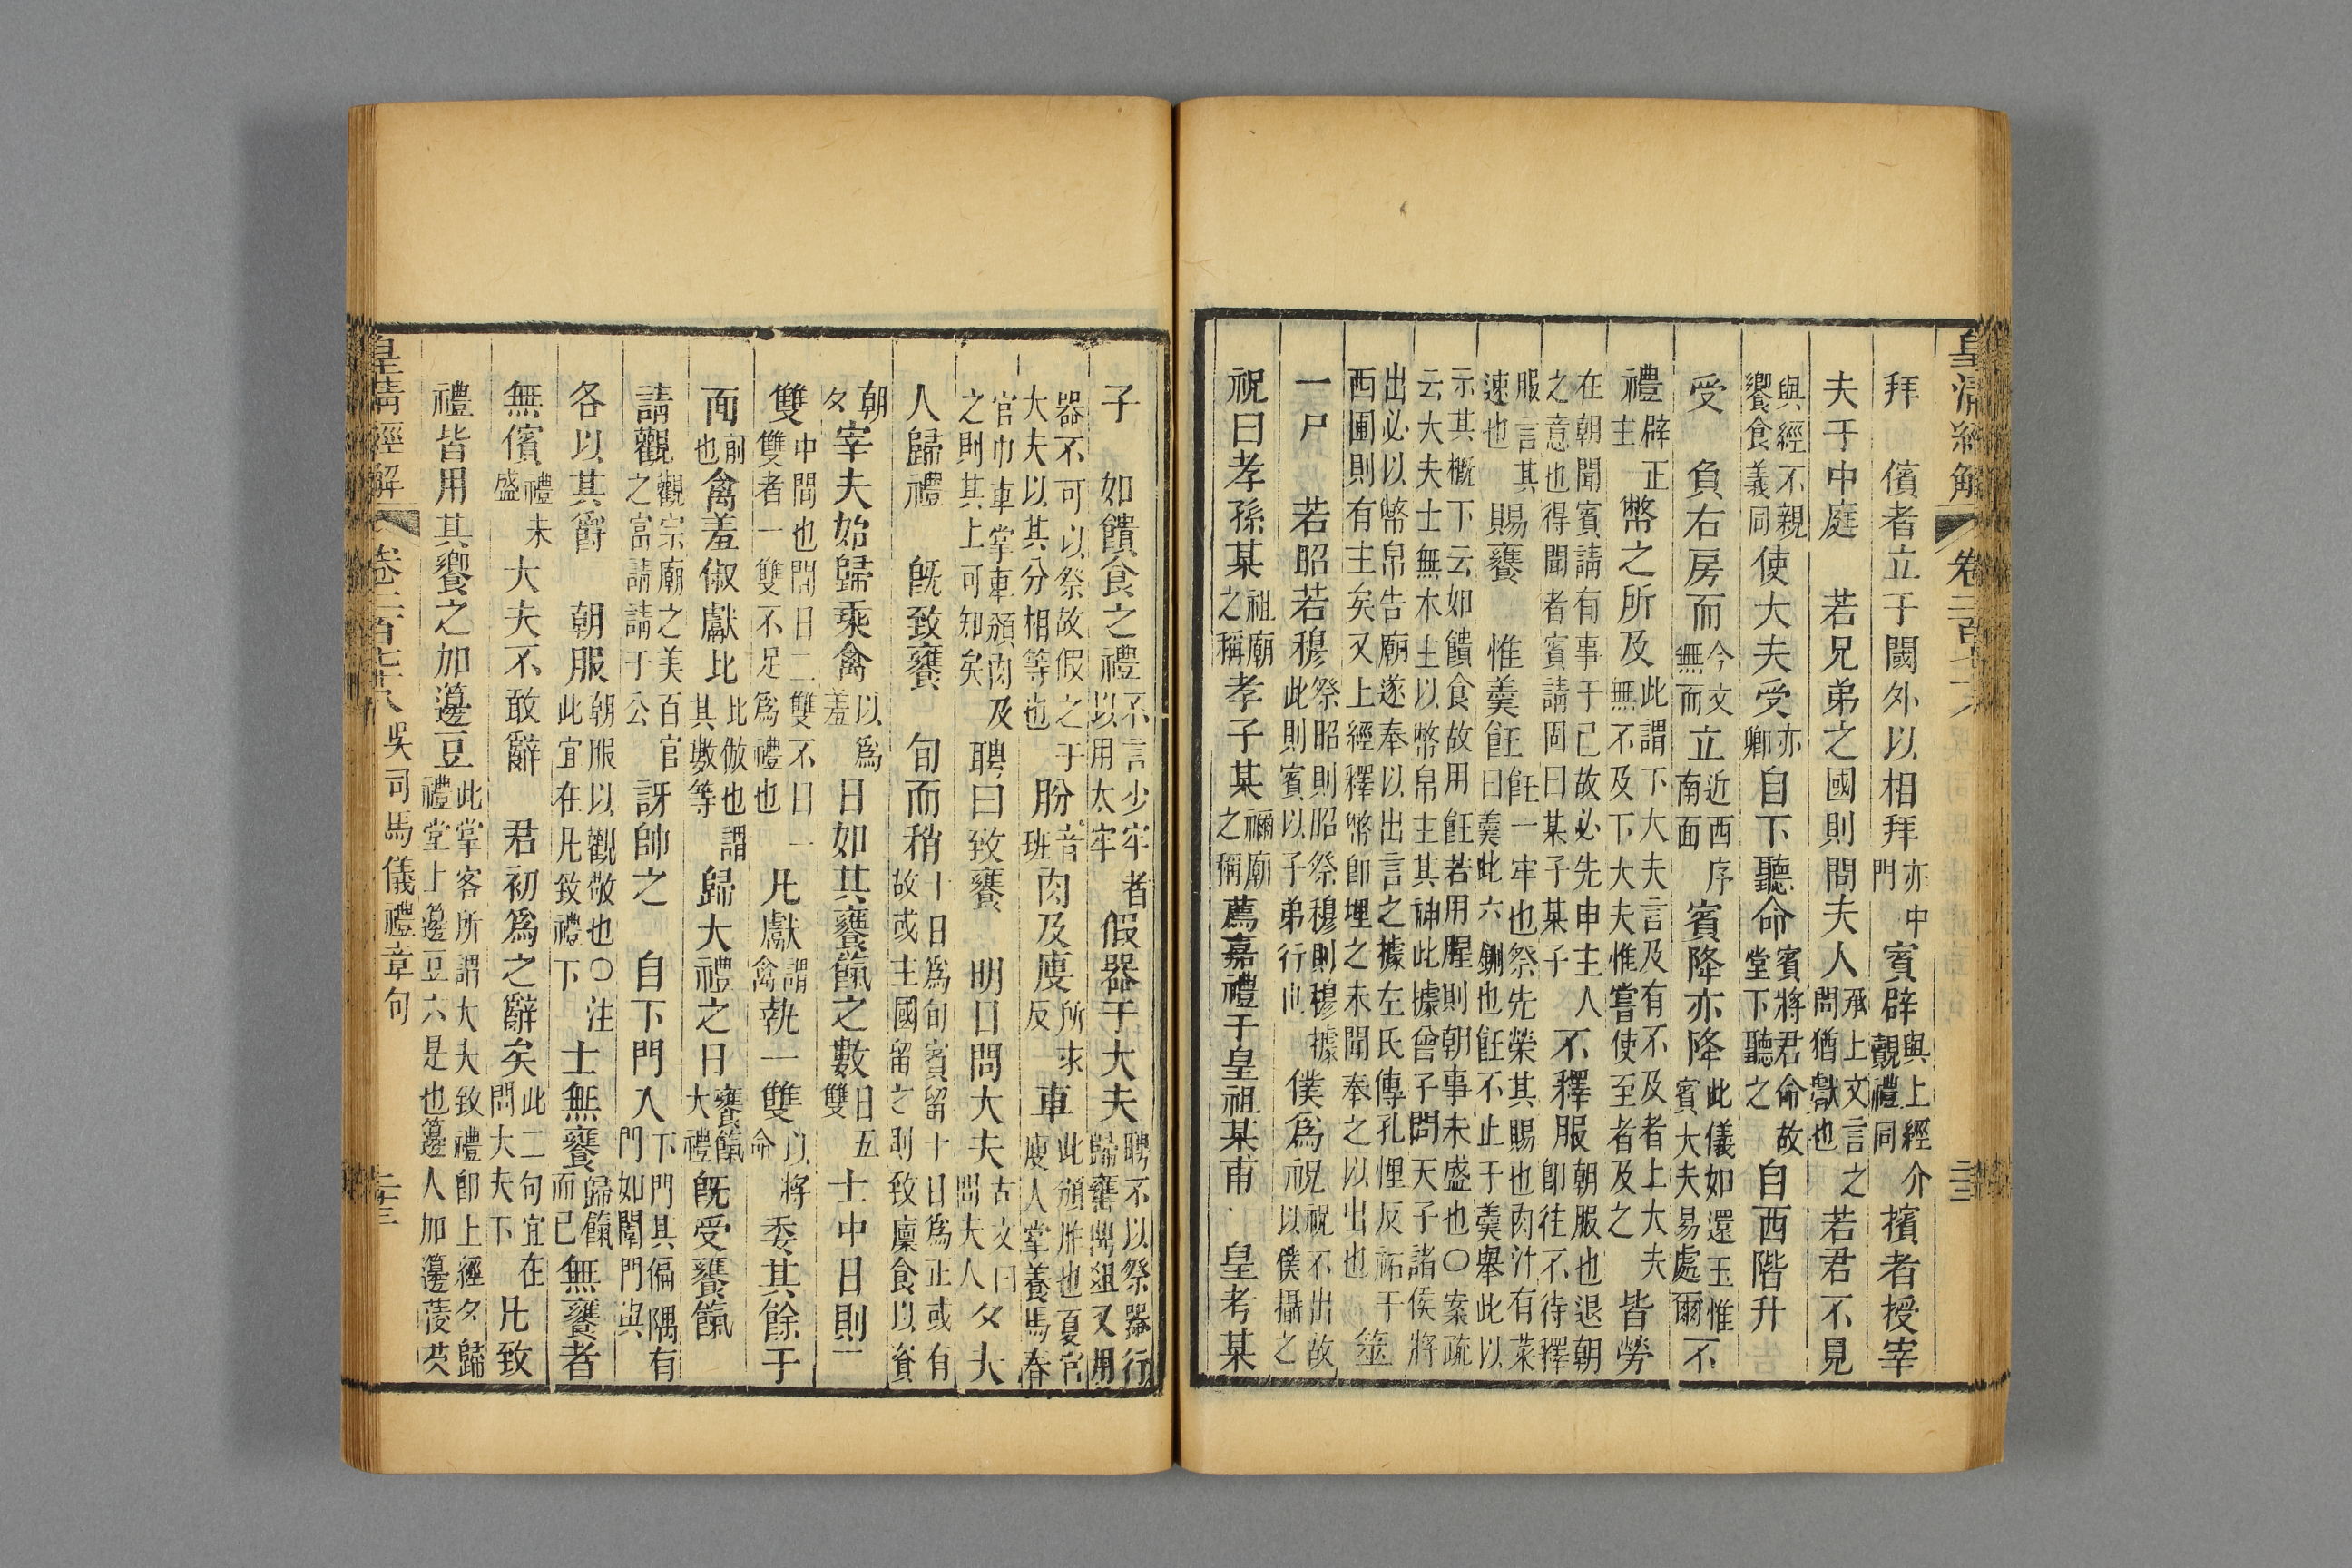 皇清經解 卷二百七十八
拜 儐者立于閾外以相拜亦中門賓辟與上經覿禮同介 擯者授宰
夫于中庭 若兄弟之國則問夫人承上文言之問猶獻也 若君不見
與經不親饗食義同使大夫受亦卿自下聽命賓將君命故堂下聽之 自西階升
受 負右房而今文無而立近西序南面賓降亦降此儀如還玉惟賓大夫易處爾 不
禮辟正主 幣之所及此謂下大夫言及有不及者上大夫無不及下大夫惟嘗使至者及之 皆勞
在朝聞賓請有事于己故必先申主人之意也得聞者賓請固曰某子某子 不釋服朝服也退朝即往不待釋
服言其速也 賜饔 惟羹飪飪一牢也祭先榮其賜也肉汁有菜曰羹此六鉶也飪不止于羹舉此以
示其概下云如饋食故用飪若用腥則朝事未盛也〇案疏云大夫士無木主以幣帛主其神此據曾子問天子諸侯將
出必以幣帛告廟遂奉以出言之據左氏傳孔悝反祏于西圃則有主矣又上經釋幣即埋之未聞奉之以出也 筮
一尸 若昭若穆祭昭則昭祭穆則穆據此則賓以子弟行也 僕爲祝祝不出故以僕攝之
祝曰孝孫某祖廟之稱孝子某禰廟之稱薦嘉禮于皇祖某甫 皇考某
子 如饋食之禮不言少牢者以用太牢 假器于大夫聘不以祭器行歸饔鼎俎又用
器不可以祭故假之于大夫以其分相等也 肦音班肉及廋所求反車此頒胙也夏官廋人掌養馬春
官巾車掌車頒肉及之則其上可知矣 聘曰致饔 明日問大夫古文曰問夫人 夕夫
人歸禮 旣致饔 旬而稍十日爲旬賓留十日爲正或有故或主國留之則致廩食以資
朝夕 宰夫始歸乘禽以爲羞 日如其饔餼之數日五雙 士中日則二
雙中間也間日二雙不日一雙者一雙不足爲禮也 凡獻謂禽執一雙以將命 委其餘于
面前也 禽羞俶獻比比倣也謂其數等 歸大禮之日饔餼大禮旣受饔餼
請觀觀宗廟之美百官之富請請于公 訝帥之 自下門入下門其偏隅有門如闈門與
各以其爵 朝服朝服以觀敬也〇注此宜在凡致禮下 士無饔歸餼而已無饔者
無儐禮未盛 大夫不敢辭 君初爲之辭矣此二句宜在問大夫下 凡致
禮皆用其饗之加籩豆此掌客所謂大夫致禮即上經夕歸禮堂上籩豆六是也籩人加籩菱芡
皇清經解 卷二百七十八吳司馬儀禮章句 二十三